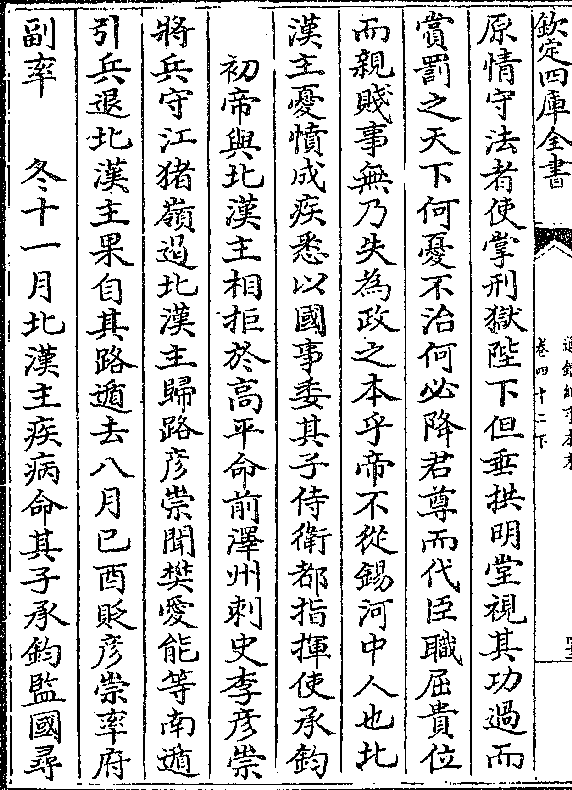 欽定四庫全書
卷四十二下
原情守法者使掌刑獄陛下但垂拱明堂視其功過而
賞罰之天下何憂不治何必降君尊而代臣職屈貴位
而親賤事無乃失為政之本乎帝不從錫河中人也北
漢主憂憤成疾悉以國事委其子侍衛都指揮使承鈞
初帝與北漢主相拒於高平命前澤州刺史李彦崇
將兵守江猪嶺遏北漢主歸路彦崇聞樊愛能等南遁
引兵退北漢主果自其路遁去八月己酉貶彦崇率府
副率　冬十一月北漢主疾病命其子承鈞監國尋